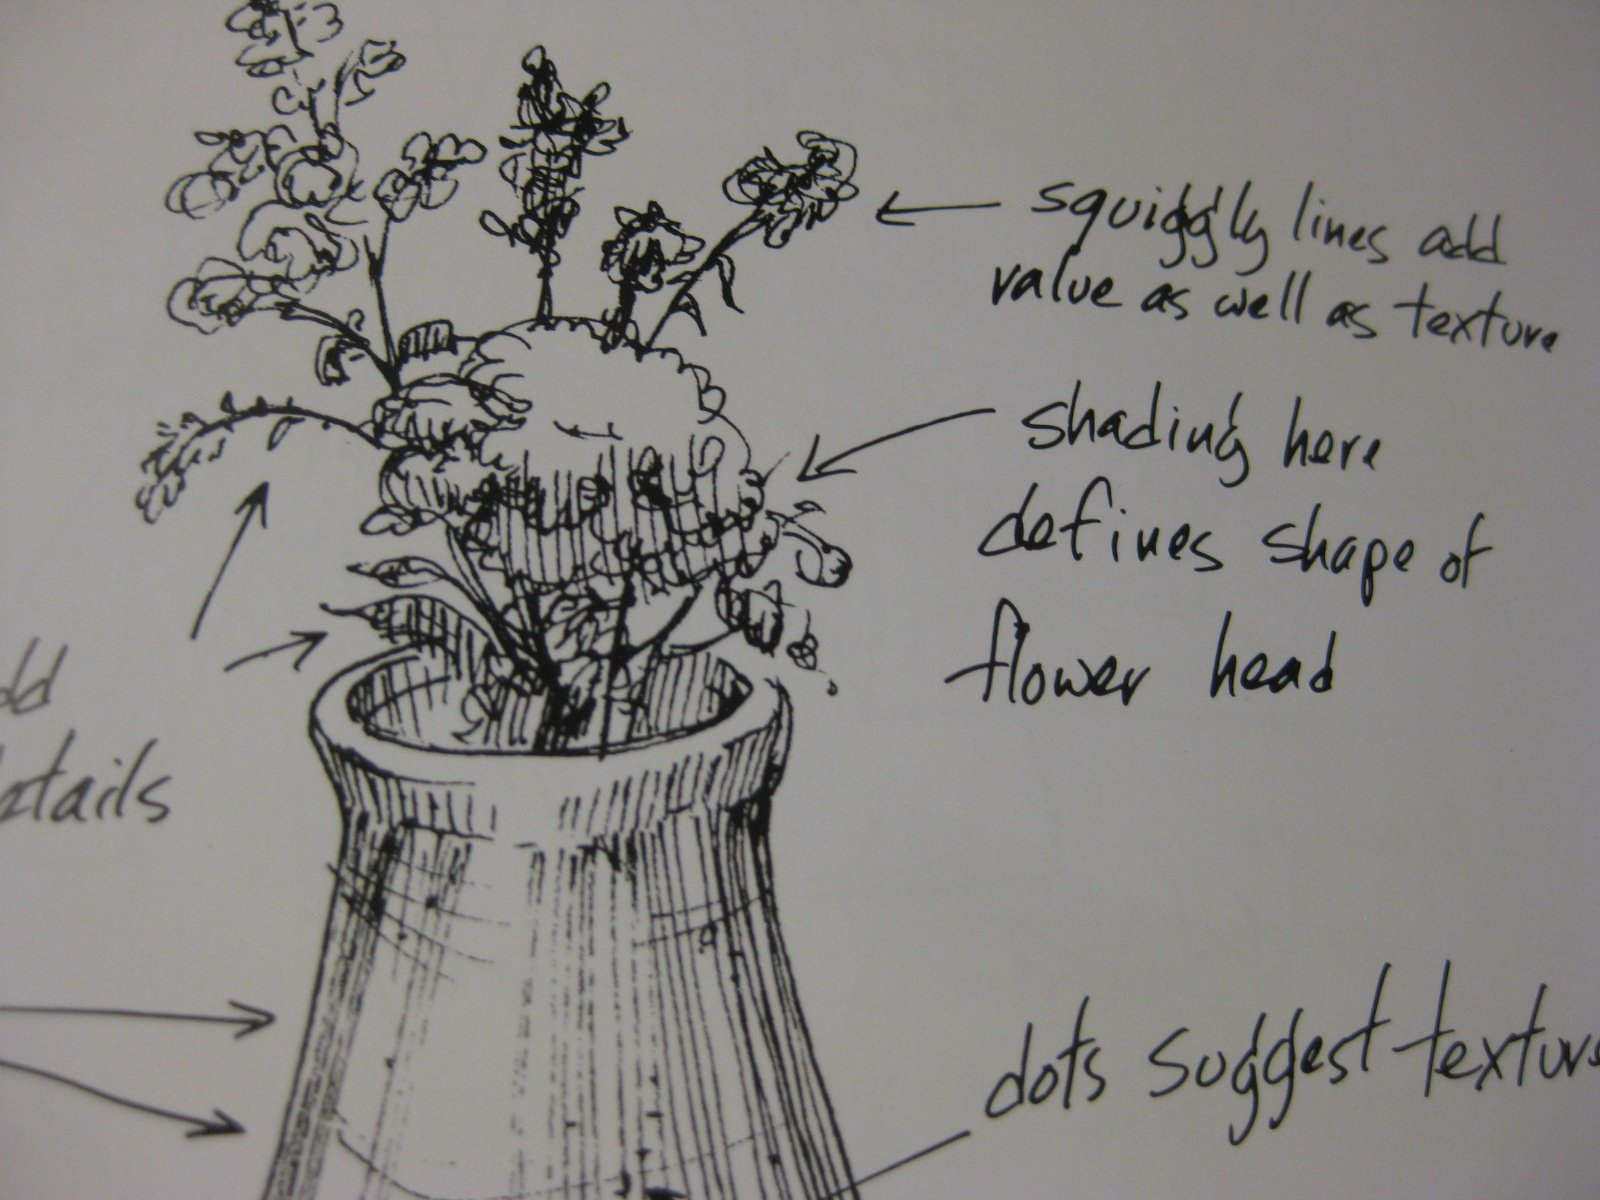 squiggly lines add
value as well as texture
shading here
defines shape of
flower head
details
dots suggest texture